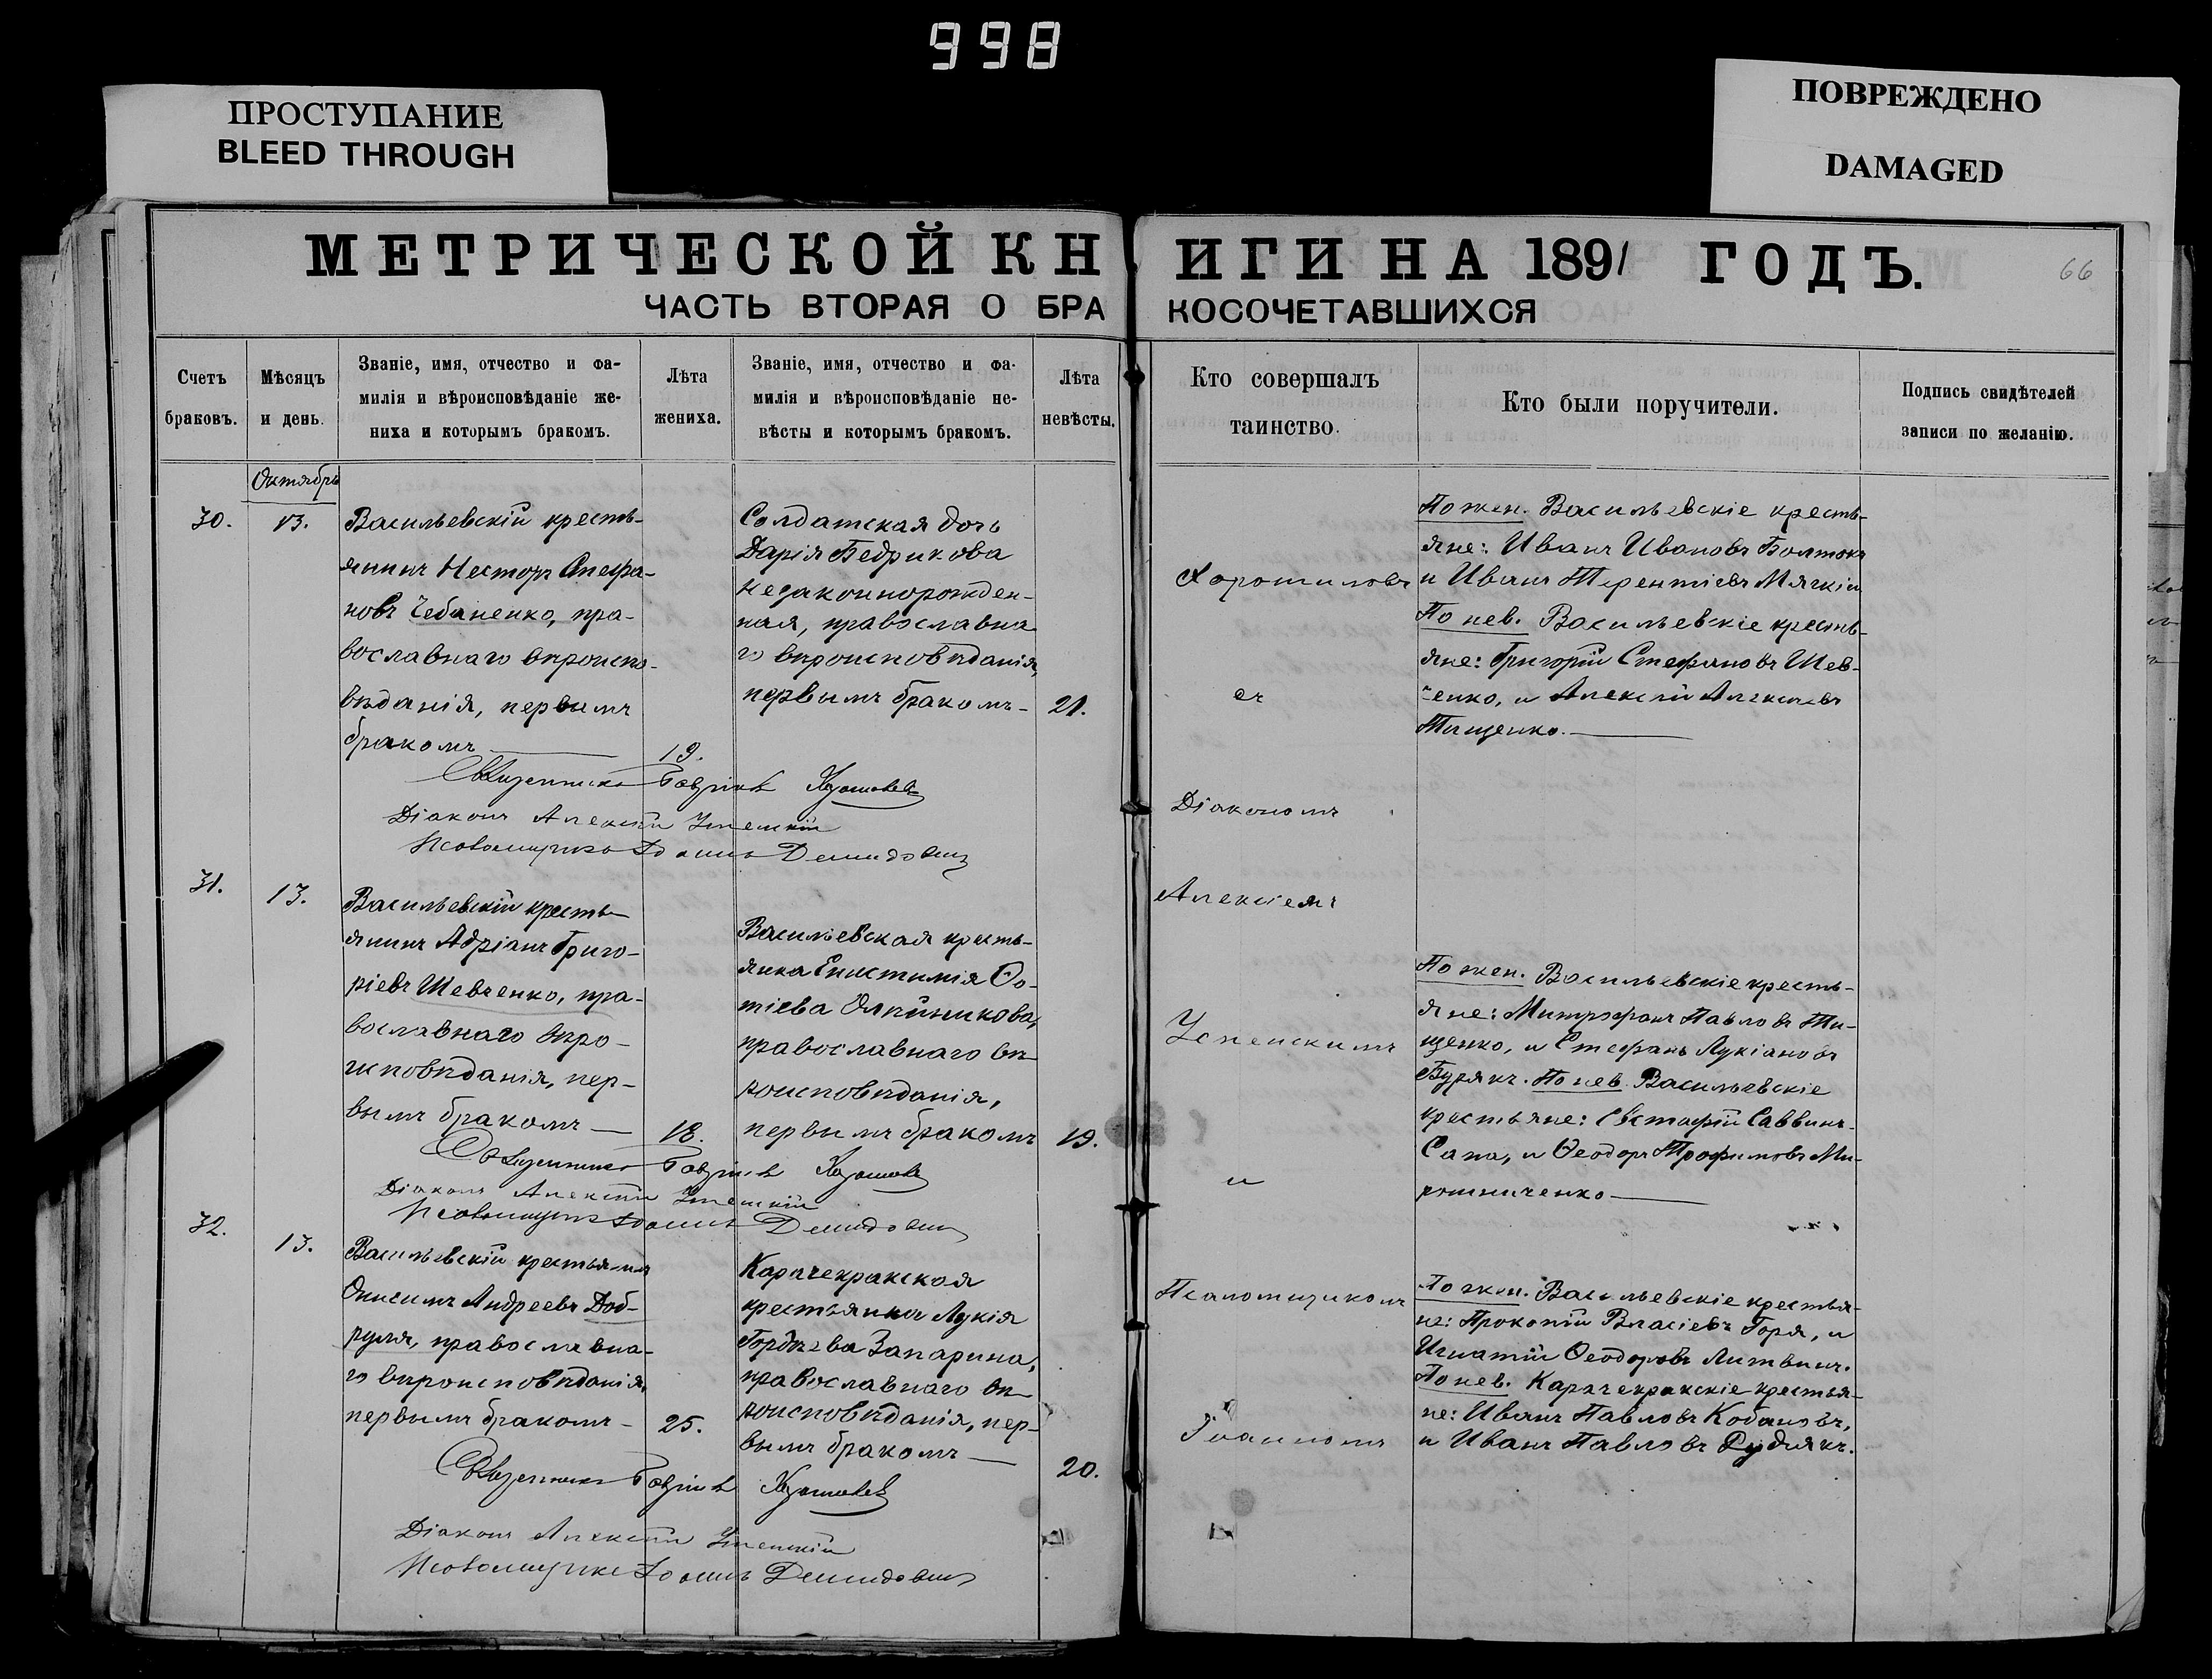 998
ПРОСТУПАНИЕ
BLEED THROUGH
ПОВРЕЖДЕНО
DAMAGED
МЕТРИЧЕСКОЙ КН
ИГИ НА 1891 ГОДЪ.
66
ЧАСТЬ ВТОРАЯ О БРА
КОСОЧЕТАВШИХСЯ
Счетъ
браковъ.
Мѣсяцъ
и день.
Званіе, имя, отчество и фа-
милія и вѣроисповѣданіе же-
ниха и которымъ бракомъ.
Лѣта
жениха.
Званіе, имя, отчество и фа-
милія и вѣроисповѣданіе не-
вѣсты и которымъ бракомъ.
Лѣта
невѣсты.
Кто совершалъ
таинство.
Кто были поручители.
Подпись свидѣтелей
записи по желанію.
Октябрь
30.
13.
Васильевскій кресть-
янинъ Несторъ Стефа-
новъ Чебаненко, пра-
вославнаго вѣроиспо-
вѣданія, первымъ
бракомъ
19.
Солдатская дочь
Дарія Бедрикова
незаконнорожден-
ная, православна-
го вѣроисповѣданія,
первымъ бракомъ-
21.
По жен. Васильевскіе кресть-
яне: Ивант Ивановъ Болтокъ
и Иванъ Терентіевъ Мягкій
По нев. Васильевскіе кресть-
яне: Григорій Стефановъ Шев-
ченко, и Алексій Алексіевъ
Тищенко.
Священникъ Гавріилъ
Діаконъ Алексій Успенскій
Псаломщикъ Іоаннъ Демидовичъ
31.
13.
Васильевскій кресть-
янинъ Адріанъ Григо-
ріевъ Шевченко, пра-
вославнаго вѣро-
исповѣданія, пер-
вымъ бракомъ
18.
Васильевская кресть-
янка Епистимія Фо-
тіева Олейникова,
православнаго вѣ-
роисповѣданія,
первымъ бракомъ
19.
По жен. Васильевскіе кресть-
яне: Митрофанъ Павловъ Ти-
щенко, и Стефанъ Лукіановъ
Бурякъ. По нев. Васильевскіе
крестьяне: Евстафій Саввинъ
Сапа, и Ѳеодоръ Трофимовъ Ми-
рошниченко
Священникъ Гавріилъ
Діаконъ Алексій Успенскій
Псаломщикъ Іоаннъ Демидовичъ
32.
13.
Васильевскій крестьянинъ
Онисимъ Андреевъ Доб-
руля, православна-
го вѣроисповѣданія,
первымъ бракомъ-
25.
Карачекракская
крестьянка Лукія
Гордѣева Запарина,
православнаго вѣ-
роисповѣданія, пер-
вымъ бракомъ
20.
По жен. Васильевскіе крестья-
не: Прокопій Власіевъ Горя, и
Игнатій Ѳеодоровъ Литвинъ.
По нев. Карачекракскіе крестья-
не: Иванъ Павловъ Кобановъ,
и Иванъ Павловъ Рудякъ.
Священникъ Гавріилъ
Діаконъ Алексій Успенскій
Псаломщикъ Іоаннъ Демидовичъ
Діакономъ
Алексіемъ
Успенскимъ
и
Псаломщикомъ
Іоанномъ